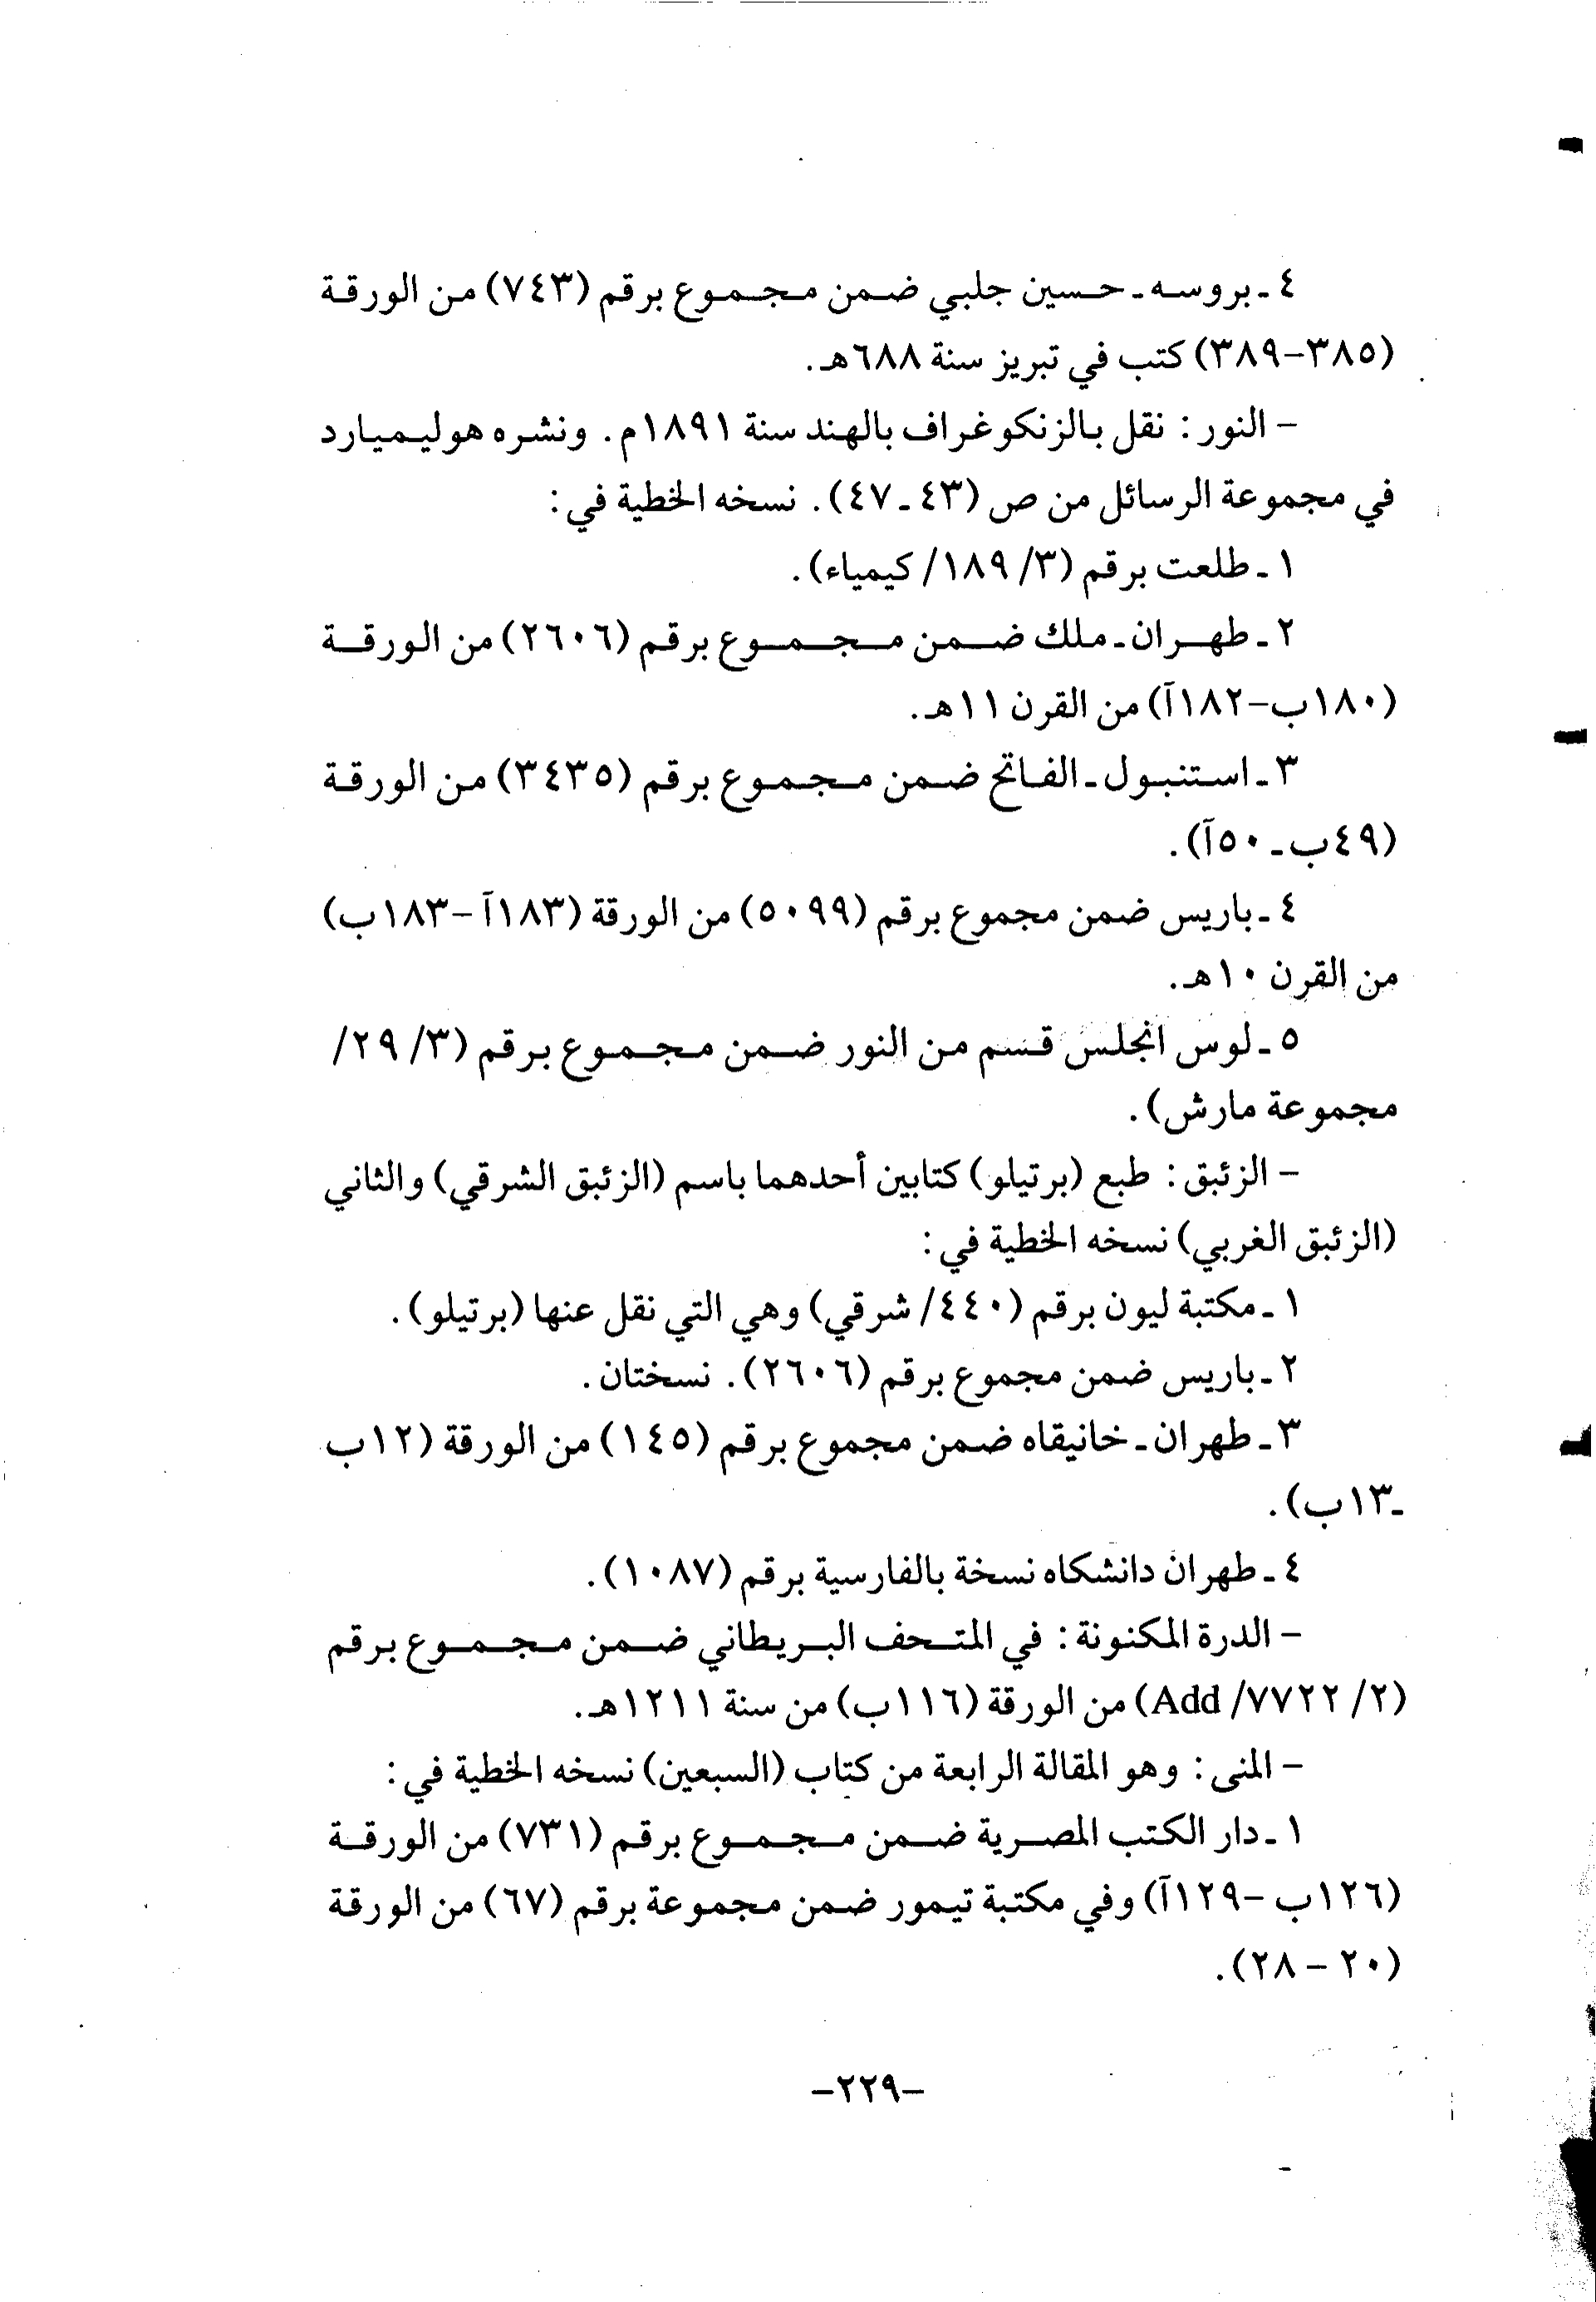 ٤ ـ بروسه ـ حسين جلبي ضمن مجموع برقم (٧٤٣) من الورقة
(٣٨٥–٣٨٩) كتب في تبريز سنة ٦٨٨هـ.
– النور: نقل بالزنكوغراف بالهند سنة ١٨٩١م. ونشره هوليميارد
في مجموعة الرسائل من ص (٤٣ ـ ٤٧). نسخه الخطية في:
١ ـ طلعت برقم (٣/ ١٨٩/ كيمياء).
٢ ـ طهران ـ ملك ضمن مجموع برقم (٢٦٠٦) من الورقة
(١٨٠ب–١٨٢آ) من القرن ١١هـ.
٣ ـ استنبول ـ الفاتح ضمن مجموع برقم (٣٤٣٥) من الورقة
(٤٩ب ـ ٥٠آ).
٤ ـ باريس ضمن مجموع برقم (٥٠٩٩) من الورقة (١٨٣آ –١٨٣ب)
من القرن ١٠هـ.
٥ ـ لوس انجلس قسم من النور ضمن مجموع برقم (٣/ ٢٩/
مجموعة مارش).
– الزئبق: طبع (برتيلو) كتابين أحدهما باسم (الزئبق الشرقي) والثاني
(الزئبق الغربي) نسخه الخطية في:
١ ـ مكتبة ليون برقم (٤٤٠/ شرقي) وهي التي نقل عنها (برتيلو).
٢ ـ باريس ضمن مجموع برقم (٢٦٠٦). نسختان.
٣ ـ طهران ـ خانيقاه ضمن مجموع برقم (١٤٥) من الورقة (١٢ب
ـ ١٣ب).
٤ ـ طهران دانشكاه نسخة بالفارسية برقم (١٠٨٧).
– الدرة المكنونة: في المتحف البريطاني ضمن مجموع برقم
(٢/ ٧٧٢٢/ Add) من الورقة (١١٦ب) من سنة ١٢١١هـ.
– المنى: وهو المقالة الرابعة من كتاب (السبعين) نسخه الخطية في:
١ ـ دار الكتب المصرية ضمن مجموع برقم (٧٣١) من الورقة
(١٢٦ب –١٢٩آ) وفي مكتبة تيمور ضمن مجموعة برقم (٦٧) من الورقة
(٢٠ – ٢٨).
–٢٢٩–